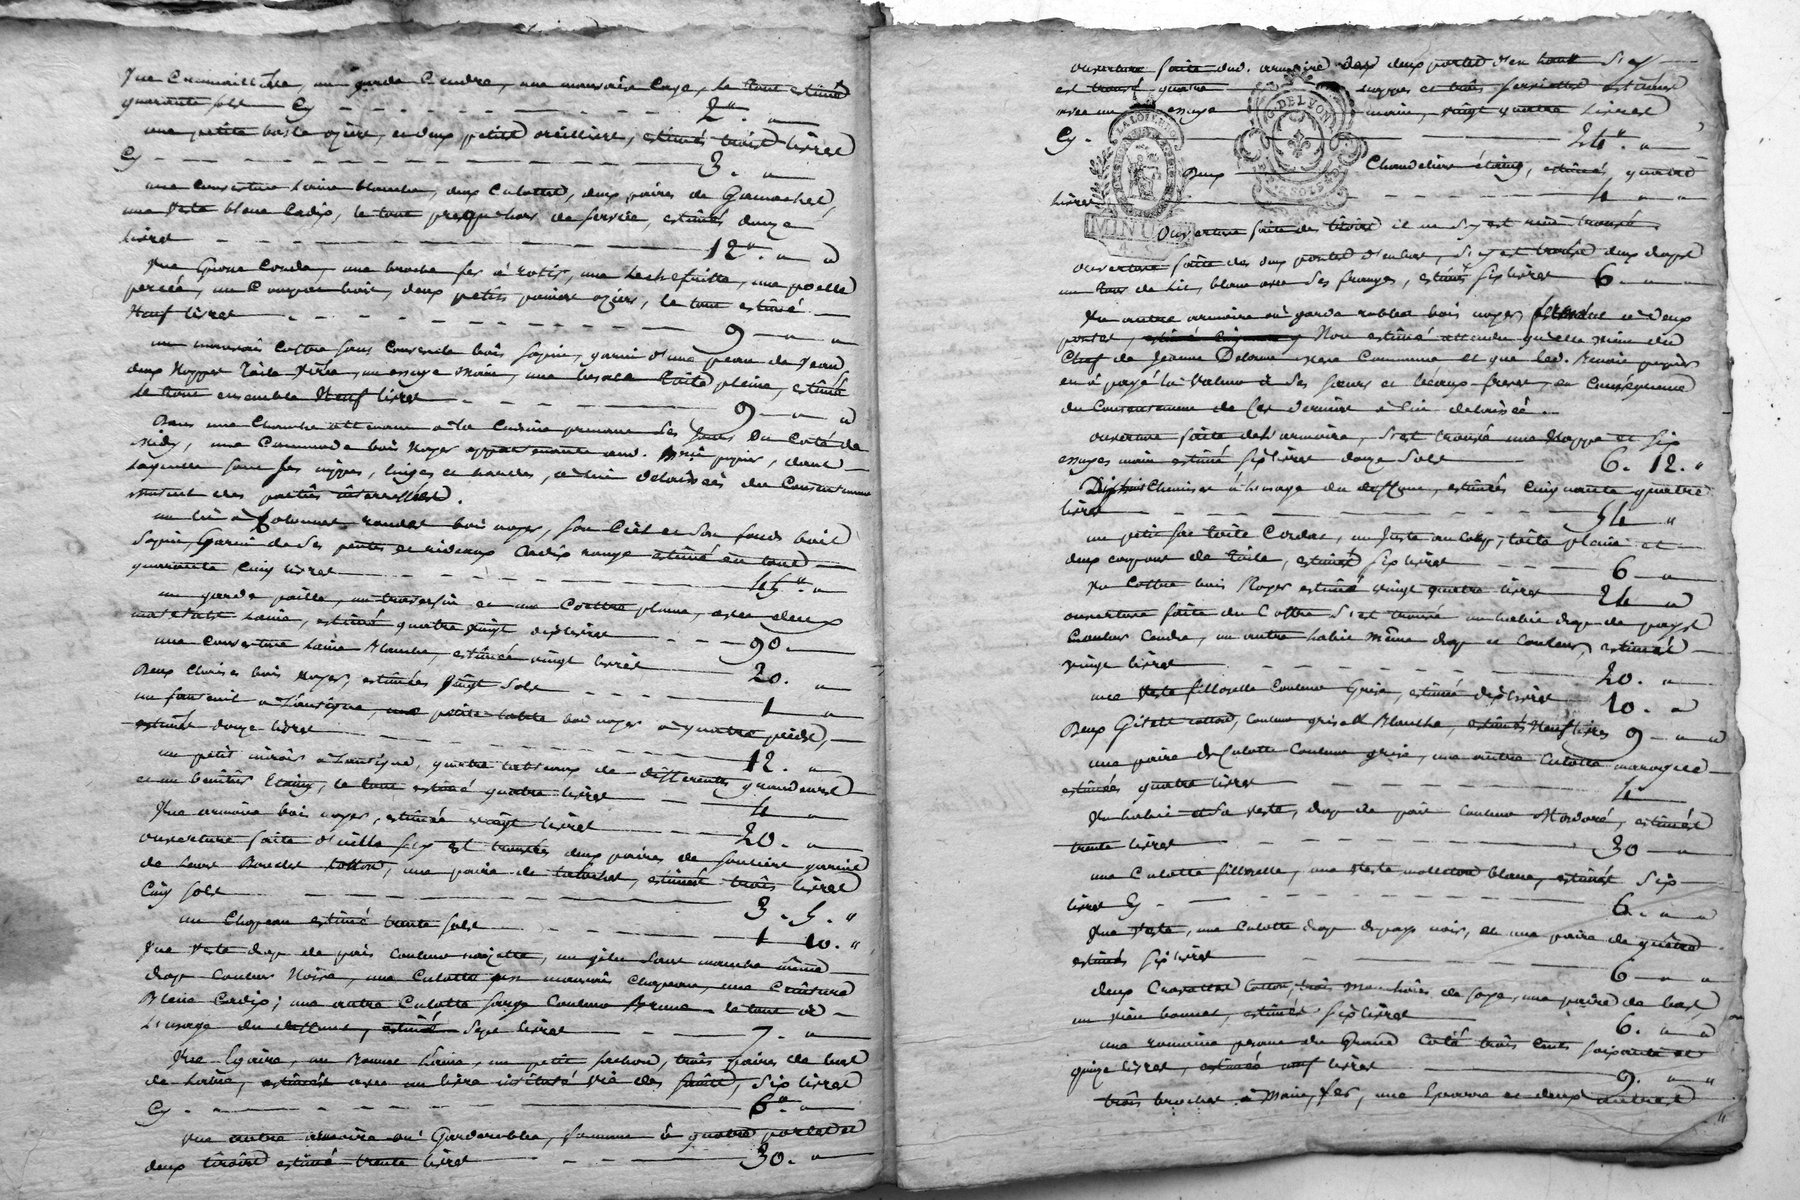 Une Cremaillere, un garde Cendre, une mauvaise Cage, le tout estimé
quarante sols Cy 2"
une petite baste ozier, et deux petits oreilliers, estimés trois livres
Cy 3. "
une couverture Laine blanche, deux Culottes, deux paires de Gamaches,
une Veste bleue Cadis, le tout presque hors de service, estimés douze
livres 12" "
une broche fer à rotir, une Lechefritte, une poelle
percée, un bois, deux petits paniers ozier, le tout estimé
Neuf livres 9 "
un mauvais Coffre sans Couvercle bois sapin, garni d'une peau de Veau
deux Nappes Toile, un essuye main, une besace toile pleine, estimé
le tout ensemble Neuf livres 9 "
Dans une Chambre attenant à la Cuisine prenant ses Jours du Coté de
Midy, une Commode bois Noyer appartenante aud. papier, dans
laquelle sont ses nippes, linges et hardes, à lui delaissés du Consentement
des parties interessées.
un lit à Colonnes rondes bois noyer, son Ciel et son fonds bois
sapin, garni de ses pentes et rideaux Cadis rouge estimé en tout
quarante Cinq livres 45" "
un garde paille, un traversin et une Coettre plume, avec deux
matelats Laine, estimé quatre vingt dix livres 90. "
une couverture Laine Blanche, estimée vingt livres 20. "
Deux Chaises bois Noyer, estimées Vingt sols 1 "
un fauteuil à l'antique, une petite table bois noyer à quatre pieds,
estimés douze livres 12. "
un petit miroir à l'antique, quatre tableaux de differentes grandeurs
et un benitier Etaing, le tout estimé quatre livres 4 "
Une armoire bois noyer, estimée vingt livres 20. "
ouverture faite d'icelle s'y est trouvés deux paires de souliers garnies
de leurs Boucles, une paire de, estimés trois livres
Cinq sols 3. 5. "
un Chapeau estimé trente sols 1 10. "
Une Veste drap de païs Couleur noizette, un gilet sans manche même
drap Couleur Noire, une Culotte un mauvais Chapeau, une Ceinture
Laine Cadis; une autre Culotte sarge Couleur Brune le tout à
l'usage du deffunt, estimé Sept livres 7. "
Une, un Bonnet Laine, un petit, trois paires de bas
de Laine, estimés avec un livre intitulé Vie des saints, six livres
Cy 6" "
une autre armoire ou Garderobbe, fermant à quatre portes et
deux tiroirs estimé trente livres 30. "
ouverture faite dud. armoire des deux portes d'en haut s'y
est trouvé quatre nappes et trois serviettes estimées
avec un essuye main, vingt quatre livres
Cy 24" "
Deux Chandeliers étaing, estimés, quatre
livres 4 " "
Ouverture faite des tiroirs il ne s'y est rien trouvé.
ouverture faite des deux portes d'en bas, s'y est trouvé deux draps
un tour de lit, blanc avec ses franges, estimés six livres 6 " "
Un autre armoire ou garde robbes bois noyer à deux
portes, Non estimé attendu qu'elle vient du
Chef de Jeanne Delorme mere Commune et que led. papier
en a payé la valeur à ses sœurs et beaux freres, en Conséquence
du Consentement de ces derniers à lui delaissé.
ouverture faite de l'armoire, s'est trouvé une Nappe et six
essuyes main estimé six livres douze sols 6. 12. "
Dix huit Chemises à l'usage du deffunt, estimées Cinquante quatre
livres 54 "
un petit sac toile, un Juste au Corps toile pleine et
deux coupons de Toile, estimés six livres 6 "
Un Coffre bois Noyer estimé vingt quatre livres 24 "
ouverture faite du Coffre s'est trouvé un habit drap de pays
Couleur Cendre, un autre habit même drap et Couleur, estimés
vingt livres 20. "
une Veste filloselle Couleur Grise, estimée dix livres 10. "
Deux Gilets cotton, couleur grise et Blanche, estimés Neuf livres 9 " "
une paire de Culotte Couleur grise, une autre Culotte
estimées quatre livres 4
Un habit et sa Veste, drap de païs couleur Mordoré, estimés
trente livres 30 "
une Culotte filloselle, une Veste molleton blanc, estimés six
livres Cy 6. " "
Une Veste, une Culotte drap de pays noir, et une paire de guêtres
estimés six livres 6 " "
deux Cravattes Cotton, trois Mouchoirs de soye, une paire de bas,
un vieu bonnet, estimés six livres 6. " "
une romaine du Grand Coté trois Cents soixante et
quinze livres, estimée neuf livres 9. " "
trois broches à Main, fer, une et deux
C. DE LYON
LA LOI LE ROI
MINUTE